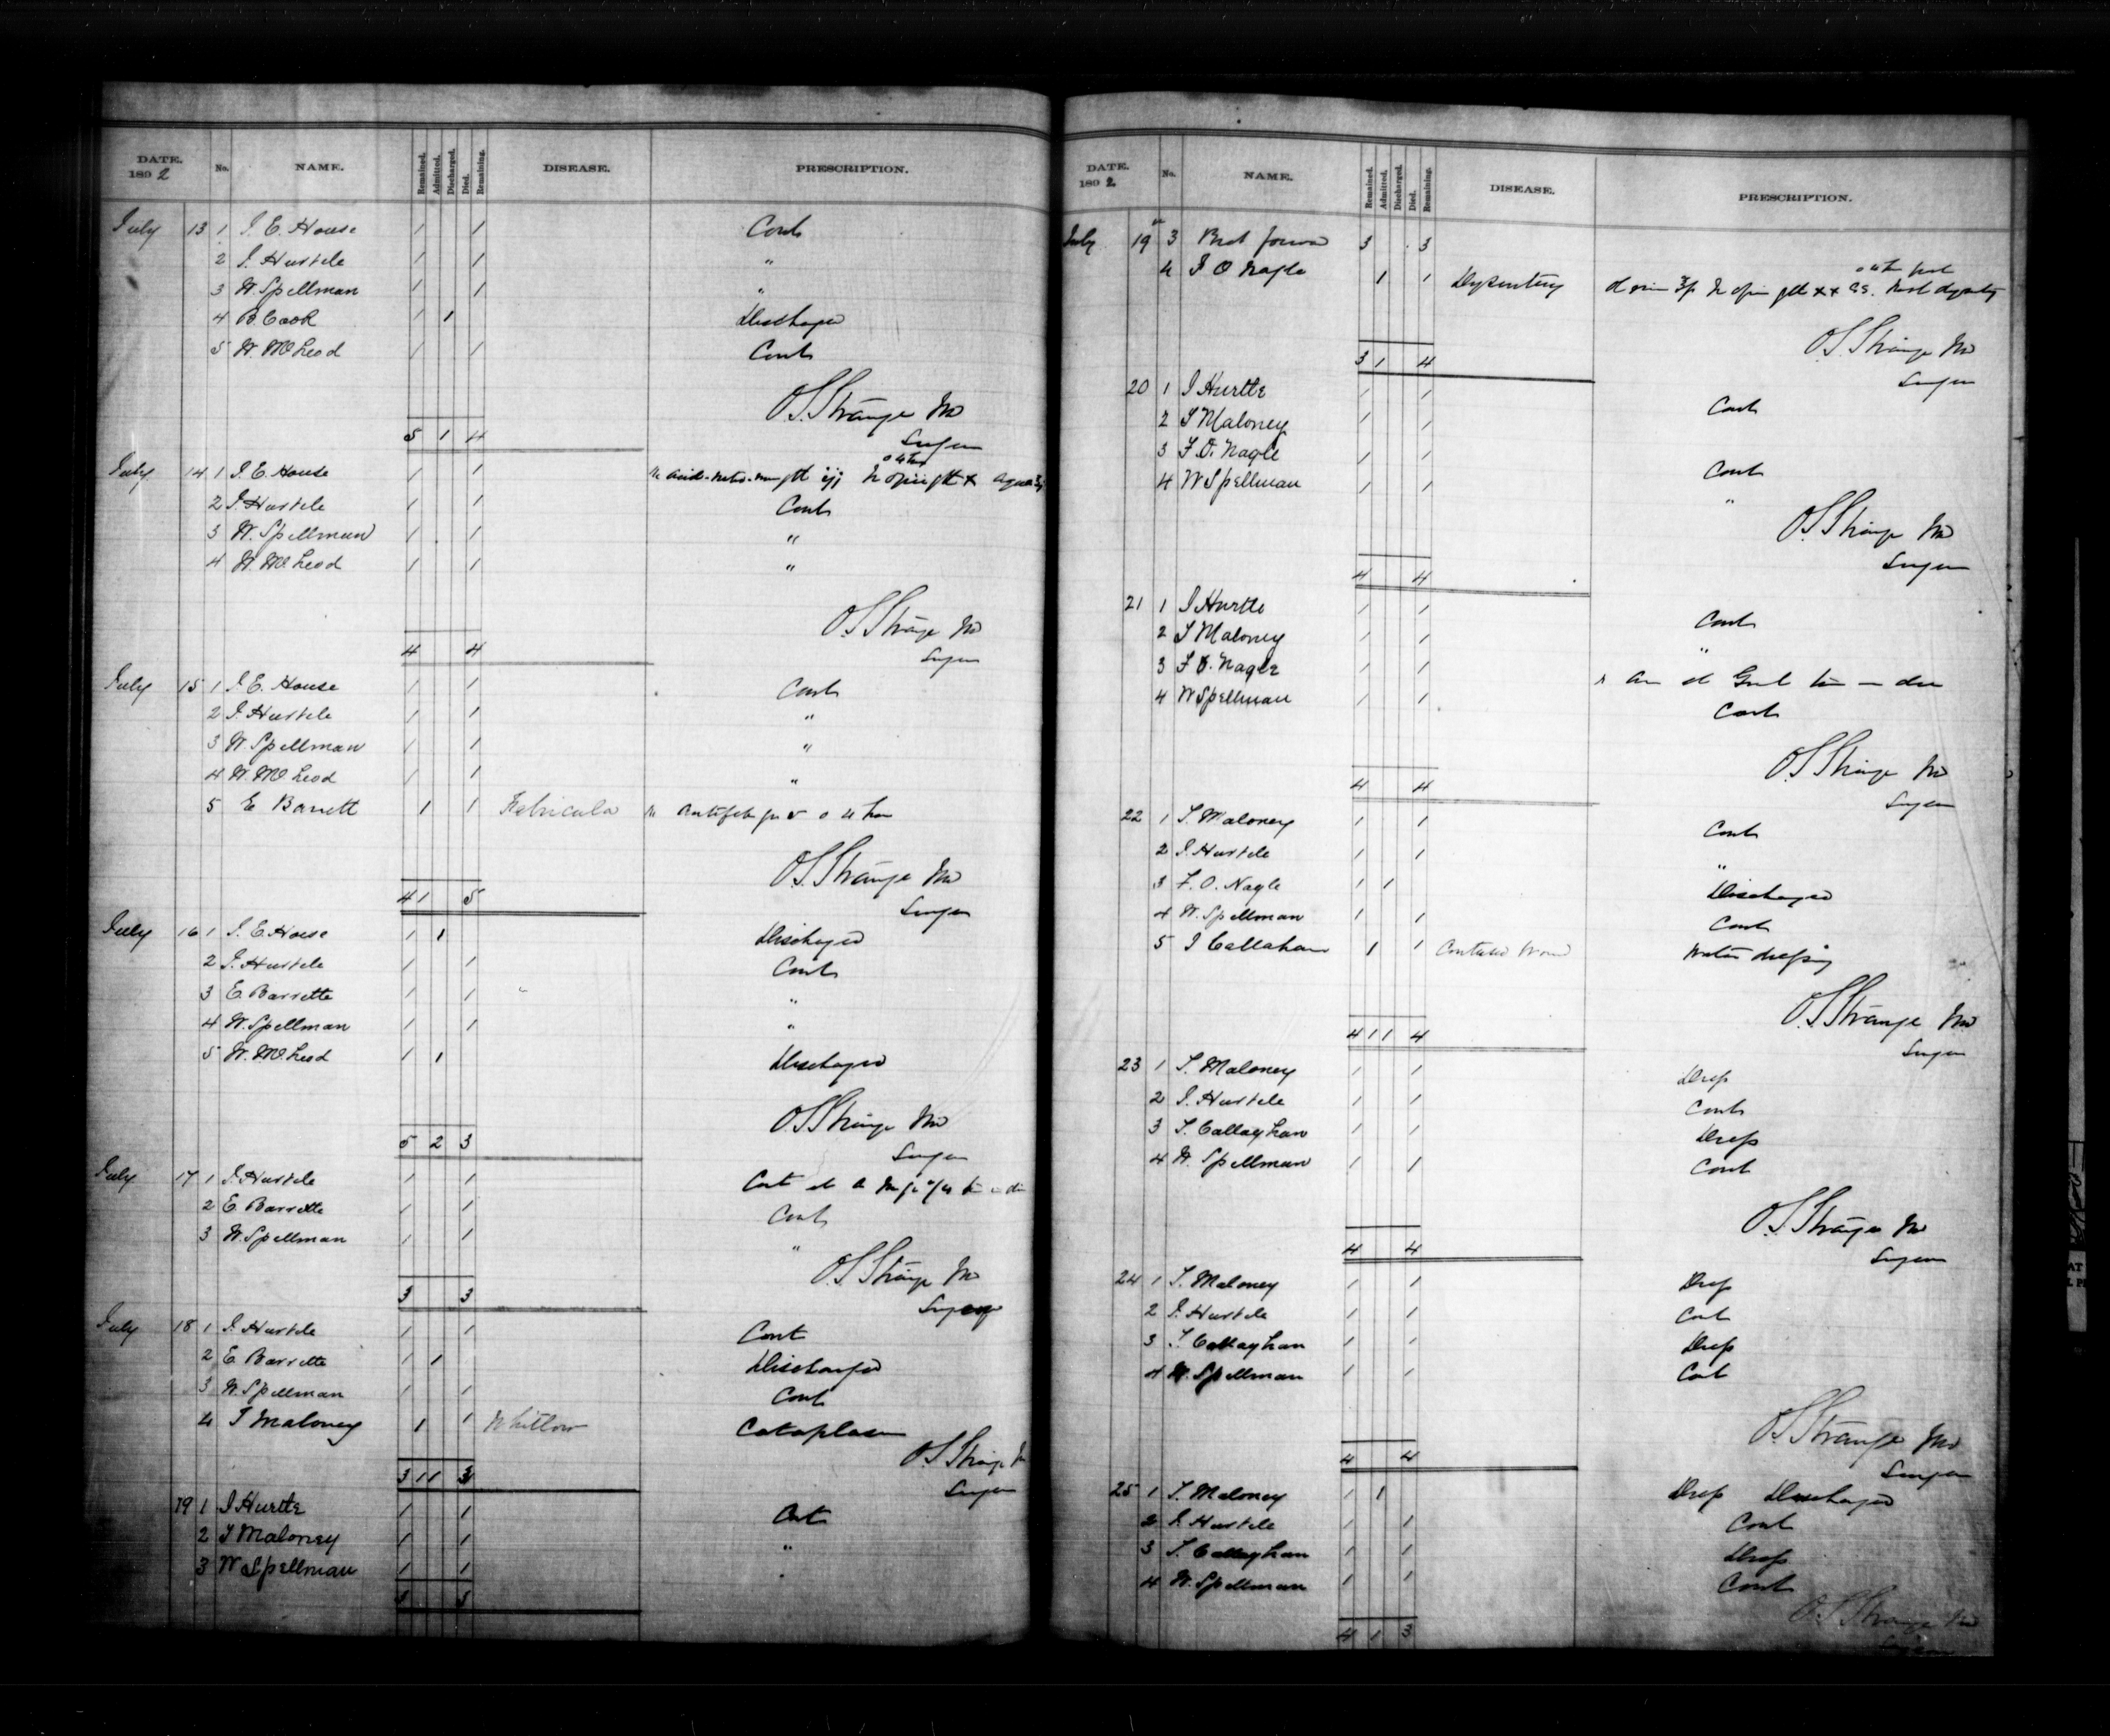 DATE. 1892 No. NAME. Remained. Admitted. Discharged. Died. Remaining. DISEASE. PRESCRIPTION.
July 13 1 J. E. House 1 1 Cont
2 J. Hurtele 1 1 "
3 W. Spellman 1 1 "
4 B. Cook 1 1 Discharged
5 W. McLeod 1 1 Cont
O.S. Strange MD
5 1 4 Surgeon
July 14 1 J. E. House 1 1
2 J. Hurtele 1 1 Cont
3 W. Spellman 1 1 "
4 W. McLeod 1 1 "
O S Strange MD
4 4 Surgeon
July 15 1 J. E. House 1 1 Cont
2 J. Hurtele 1 1 "
3 W. Spellman 1 1 "
4 W. McLeod 1 1 "
5 E Barrett 1 1 Febricula
O.S. Strange MD
4 1 5 Surgeon
July 16 1 J. E. House 1 1 Discharged
2 J. Hurtele 1 1 Cont
3 E. Barrette 1 1 "
4 W. Spellman 1 1 "
5 W. McLeod 1 1 Discharged
O.S Strange MD
5 2 3 Surgeon
July 17 1 J. Hurtele 1 1 Cont
2 E. Barrette 1 1 Cont
3 W. Spellman 1 1 "
O.S Strange MD
3 3 Surgeon
July 18 1 J. Hurtele 1 1 Cont
2 E. Barrette 1 1 Discharged
3 W. Spellman 1 1 Cont
4 T Maloney 1 1 Whitlow Cataplasm
O S Strange M
3 1 1 3 Surgeon
19 1 J Hurtle 1 1 Cont
2 T Maloney 1 1 "
3 W Spellman 1 1
3 3
DATE. 1892 No. NAME. Remained. Admitted. Discharged. Died. Remaining. DISEASE. PRESCRIPTION.
July 19 3 Brot forward 3 3
4 F O Nagle 1 1 Dysentery
O.S. Strange MD
3 1 4 Surgeon
20 1 J Hurtle 1 1 Cont
2 T Maloney 1 1
3 F. O. Nagle 1 1 Cont
4 W Spellman 1 1 "
O.S Strange MD
4 4 Surgeon
21 1 J Hurtle 1 1 Cont
2 T Maloney 1 1 "
3 F O. Nagle 1 1
4 W Spellman 1 1 Cont
O S Strange MD
4 4 Surgeon
22 1 T. Maloney 1 1 Cont
2 J. Hurtele 1 1 "
3 F. O. Nagle 1 1 Discharged
4 W. Spellman 1 1 Cont
5 J Callahan 1 1 Contused Wound Water dressing
O.S Strange MD
4 1 1 4 Surgeon
23 1 T. Maloney 1 1 Dress
2 J. Hurtele 1 1 Cont
3 T. Callaghan 1 1 Dress
4 W. Spellman 1 1 Cont
O.S Strange MD
4 4 Surgeon
24 1 T. Maloney 1 1 Dress
2 J. Hurtele 1 1 Cont
3 T Callaghan 1 1 Dress
4 W. Spellman 1 1 Cont
O.S Strange MD
4 4 Surgeon
25 1 T. Maloney 1 1 Dress Discharged
2 J. Hurtele 1 1 Cont
3 T. Callaghan 1 1 Dress
4 W. Spellman 1 1 Cont
O.S Strange MD
4 1 3